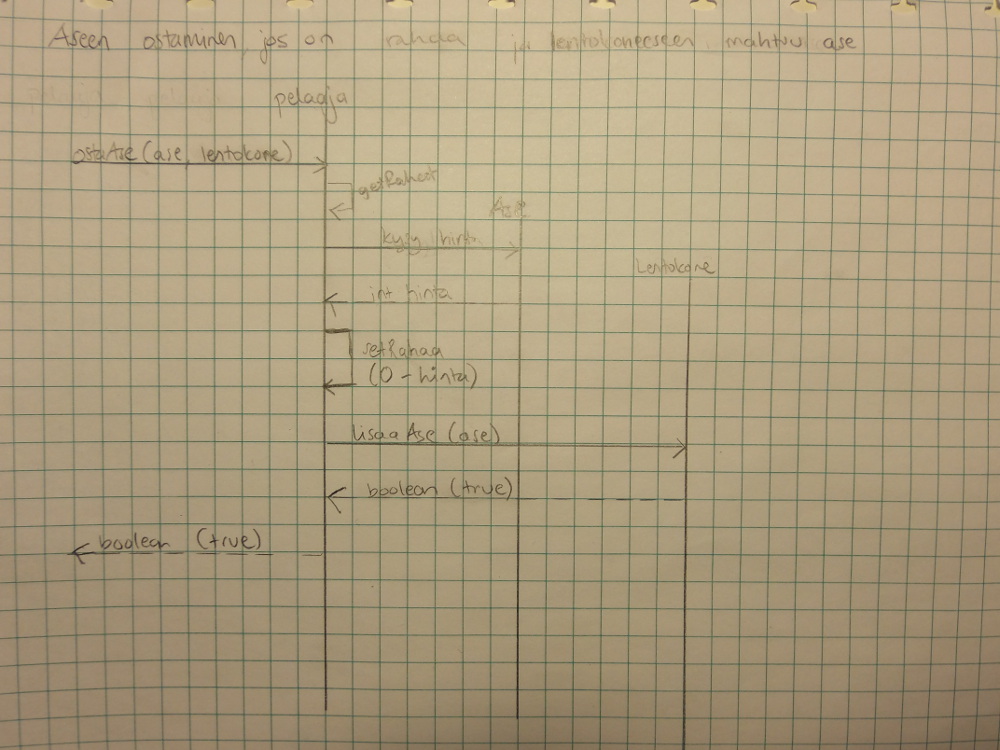 Aseen ostaminen, jos on rahaa ja lentokoneeseen mahtuu ase
pelaaja
ostaAse (ase, lentokone)
getRahaat
Ase
kysy hinta
Lentokone
int hinta
setRahaa
(0 - hinta)
lisaaAse (ase)
boolean (true)
boolean (true)